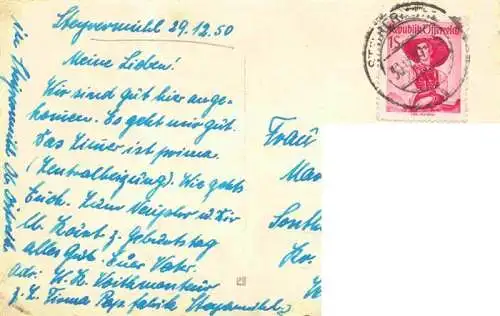 Steyrermühl 29.12.50
Meine Lieben!
Wir sind gut hier ange-
komen. Es geht mir gut.
Das Zimer ist prima
(Zentralheizung). Wie gehts
Euch. Zum Neujahr u. Dir
lb. z. Geburtstag
alles Gute. Euer Vater.
adr. W. K.
z. Z. Firma Pap. fabrik Steyrermühl
in Steyrermühl Ob. Österr.
Frau
Republik Österreich
1S